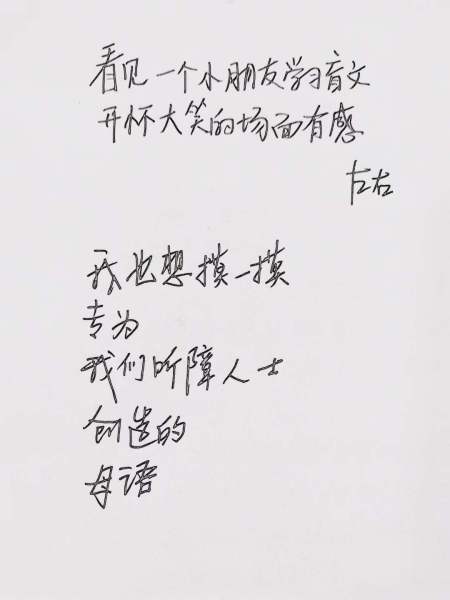 看见一个小朋友学习盲文
开怀大笑的场面有感
左右
我也想摸一摸
专为
我们听障人士
创造的
母语